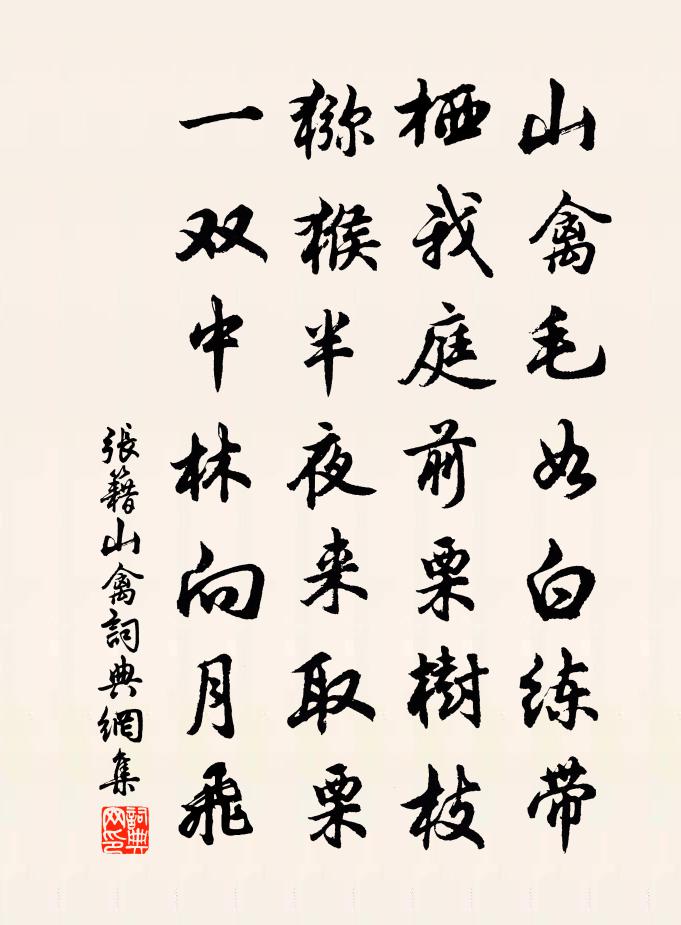 山禽毛如白练带
栖我庭前栗樹枝
猕猴半夜来取栗
一双中林向月飛
張籍山禽詞典網集
詞典網印